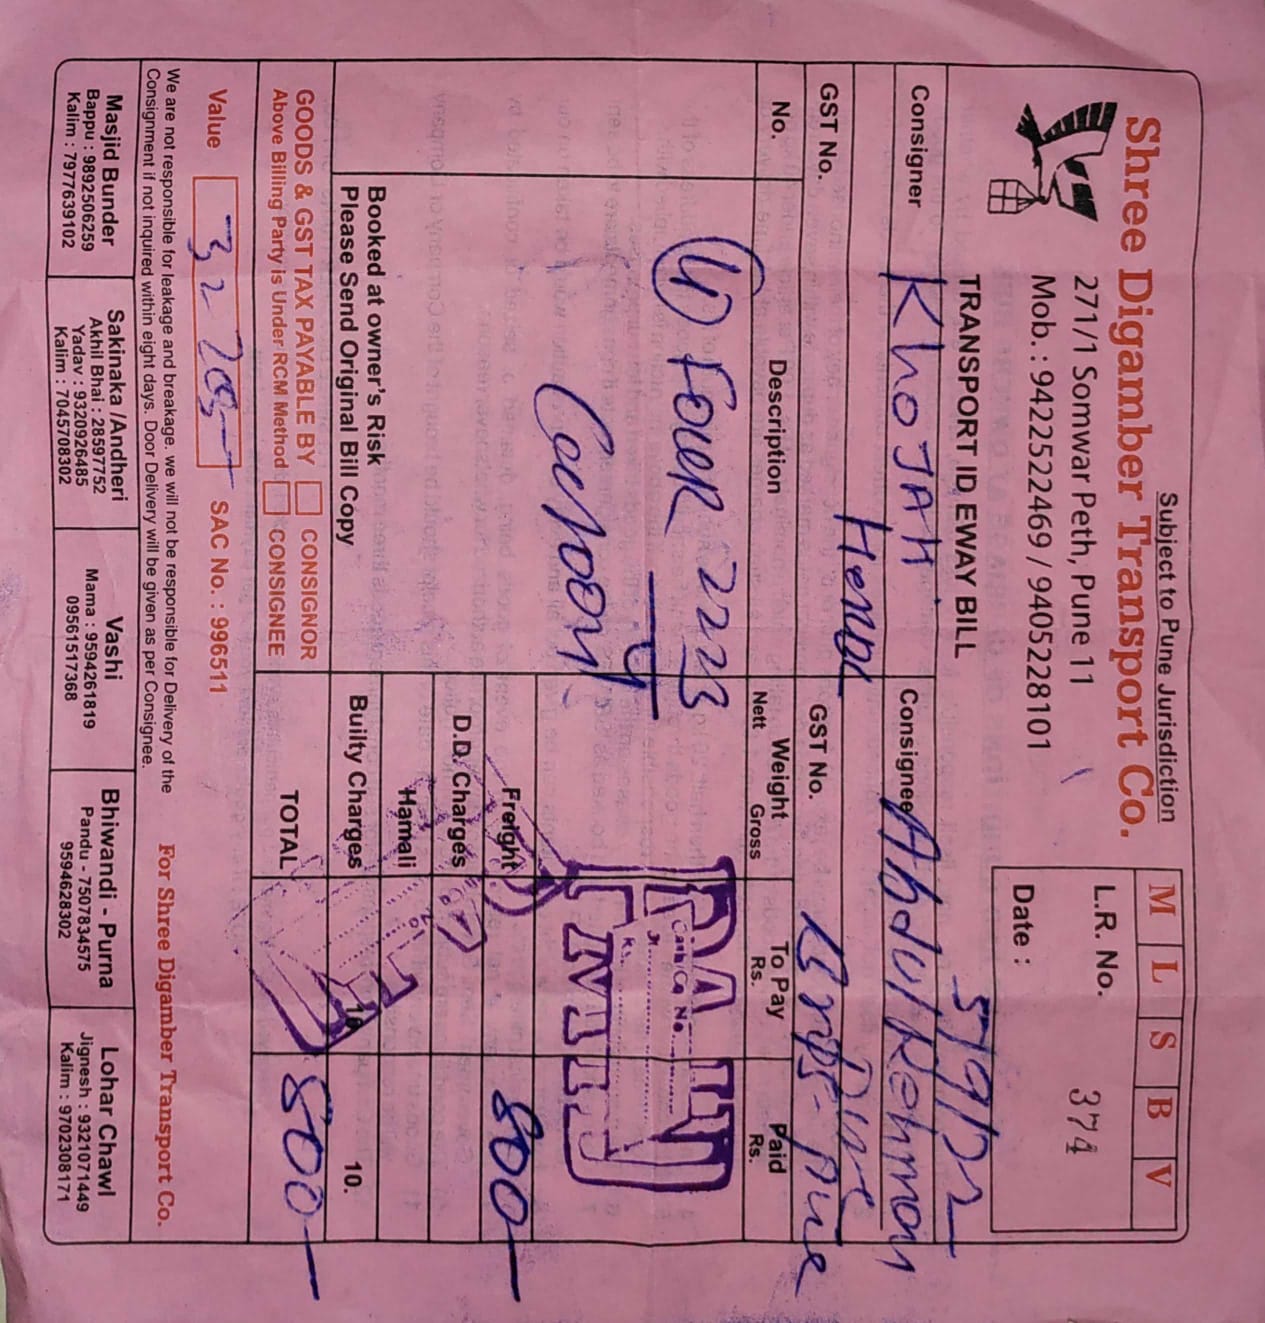 Subject to Pune Jurisdiction
Shree Digamber Transport Co.
271/1 Somwar Peth, Pune 11
Mob. : 9422522469 / 9405228101
M L S B V
L.R. No. 374
Date :
TRANSPORT ID EWAY BILL
Consigner KhoJAH
Consignee Abdul Rehman
GST No.
GST No.
No. Description Weight To Pay Rs. Paid Rs.
Nett Gross
(4) FOUR 2223
PAID
Cash Ca No.
Rs.
Freight 800
D.D. Charges
Hamali
Booked at owner's Risk
Please Send Original Bill Copy
Builty Charges 10. 10.
GOODS & GST TAX PAYABLE BY CONSIGNOR
Above Billing Party is Under RCM Method CONSIGNEE
TOTAL 800
Value 32205 SAC No. : 996511
We are not responsible for leakage and breakage. we will not be responsible for Delivery of the
Consignment if not inquired within eight days. Door Delivery will be given as per Consignee.
For Shree Digamber Transport Co.
Masjid Bunder
Bappu : 9892506259
Kalim : 7977639102
Sakinaka /Andheri
Akhil Bhai : 28597752
Yadav : 9320926485
Kalim : 7045708302
Vashi
Mama : 9594261819
09561517368
Bhiwandi - Purna
Pandu - 7507834575
9594628302
Lohar Chawl
Jignesh : 9321071449
Kalim : 9702308171